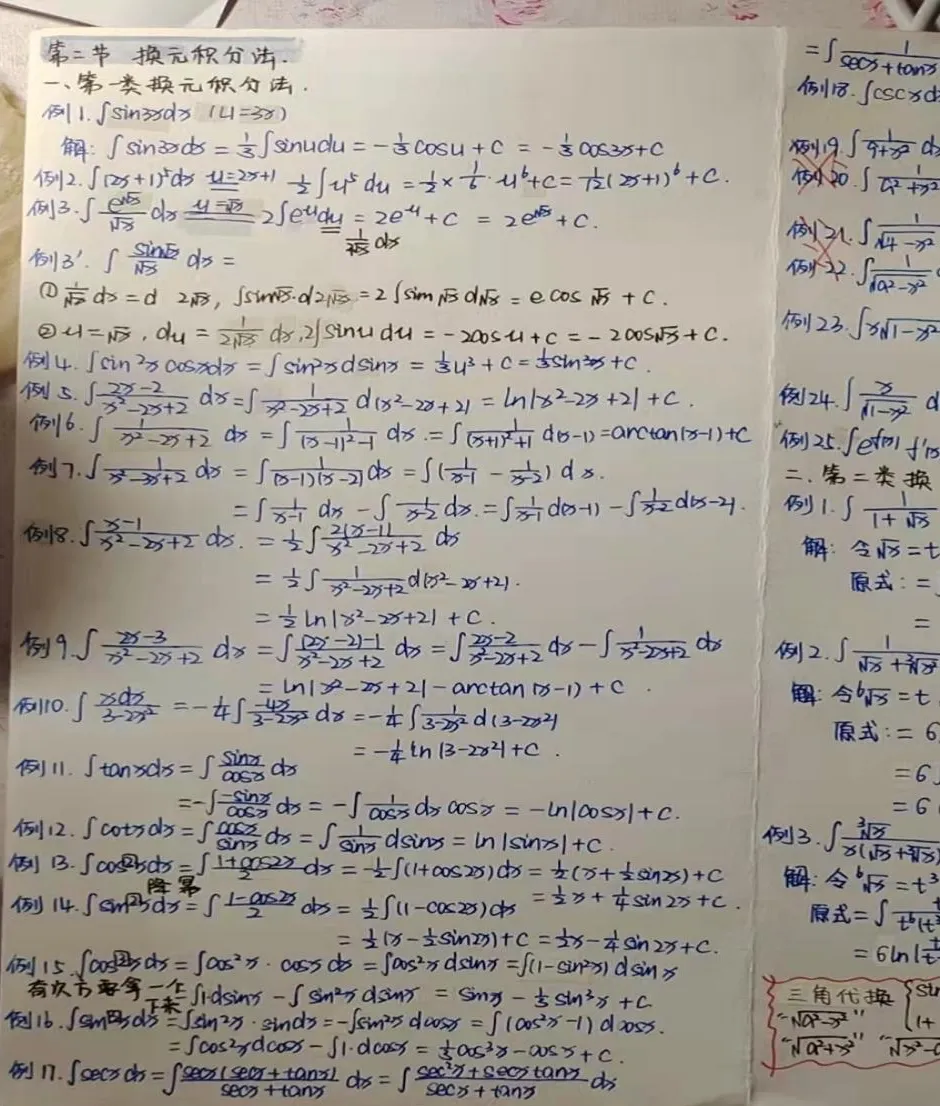 第二节 换元积分法.
一、第一类换元积分法.
例1. ∫sin3xdx (u=3x)
解: ∫sin3xdx = 1/3∫sinudu = -1/3cosu + C = -1/3cos3x+C
例2. ∫(2x+1)^5dx u=2x+1 1/2∫u^5du = 1/2×1/6·u^6+C = 1/12(2x+1)^6+C.
例3. ∫e^√x/√x dx u=√x 2∫e^u du = 2e^u+C = 2e^√x+C.
1/2√x dx
例3'. ∫sin√x/√x dx =
① 1/√x dx = d 2√x, ∫sin√x·d2√x = 2∫sin√x d√x = e cos√x + C.
② u=√x, du = 1/2√x dx, 2∫sinudu = -2cosu+C = -2cos√x+C.
例4. ∫sin²xcosxdx = ∫sin²xdsinx = 1/3u³+C = 1/3sin³x+C.
例5. ∫(2x-2)/(x²-2x+2) dx = ∫1/(x²-2x+2) d(x²-2x+2) = ln|x²-2x+2|+C.
例6. ∫1/(x²-2x+2) dx = ∫1/((x-1)²-1) dx. = ∫1/((x+1)²+1) d(x-1) = arctan(x-1)+C
例7. ∫1/(x²-3x+2) dx = ∫1/((x-1)(x-2)) dx = ∫(1/(x-1) - 1/(x-2)) dx.
= ∫1/(x-1) dx - ∫1/(x-2) dx. = ∫1/(x-1) d(x-1) - ∫1/(x-2) d(x-2).
例8. ∫(x-1)/(x²-2x+2) dx. = 1/2∫2(x-1)/(x²-2x+2) dx
= 1/2∫1/(x²-2x+2) d(x²-2x+2).
= 1/2 ln|x²-2x+2| + C.
例9. ∫(2x-3)/(x²-2x+2) dx = ∫((2x-2)-1)/(x²-2x+2) dx = ∫(2x-2)/(x²-2x+2) dx - ∫1/(x²-2x+2) dx
= ln|x²-2x+2| - arctan(x-1) + C.
例10. ∫xdx/(3-2x²) = -1/4∫-4x/(3-2x²) dx = -1/4∫1/(3-2x²) d(3-2x²)
= -1/4 ln|3-2x²|+C.
例11. ∫tanxdx = ∫sinx/cosx dx
= -∫-sinx/cosx dx = -∫1/cosx dx cosx = -ln|cosx|+C.
例12. ∫cotxdx = ∫cosx/sinx dx = ∫1/sinx dsinx = ln|sinx|+C.
例13. ∫cos²xdx = ∫(1+cos2x)/2 dx = 1/2∫(1+cos2x)dx = 1/2(x+1/2sin2x)+C
降幂
= 1/2x + 1/4sin2x+C.
例14. ∫sin²xdx = ∫(1-cos2x)/2 dx = 1/2∫(1-cos2x)dx
= 1/2(x-1/2sin2x)+C = 1/2x-1/4sin2x+C.
例15. ∫cos³xdx = ∫cos²x·cosxdx = ∫cos²xdsinx = ∫(1-sin²x)dsinx
有次方要拿一个下来
= ∫1·dsinx - ∫sin²xdsinx = sinx - 1/3sin³x + C
例16. ∫sin³xdx = ∫sin²x·sindx = -∫sin²xdcosx = ∫(cos²x-1)dcosx.
= ∫cos²xdcosx - ∫1·dcosx = 1/3cos³x-cosx+C.
例17. ∫secxdx = ∫secx(secx+tanx)/(secx+tanx) dx = ∫(sec²x+secxtanx)/(secx+tanx) dx
= ∫1/(secx+tanx
例18. ∫cscxd
例19. ∫1/(9+x²) d
例20. ∫1/(a²+x²
例21. ∫1/√(4-x²
例22. ∫1/√(a²-x²
例23. ∫x√(1-x²
例24. ∫x/√(1-x²) d
例25. ∫e^f(x) f'(x
二、第二类换
例1. ∫1/(1+√x
解: 令√x=t
原式: =
=
例2. ∫1/(√x+∛x²
解: 令⁶√x=t
原式: = 6
= 6
= 6
例3. ∫∛x/(x(√x+∛x)
解: 令⁶√x=t³
原式=∫t/(t⁶(t³
= 6ln|t/
三角代换
"√(a²-x²)"
"√(a²+x²)" "√(x²-a
sin
1+